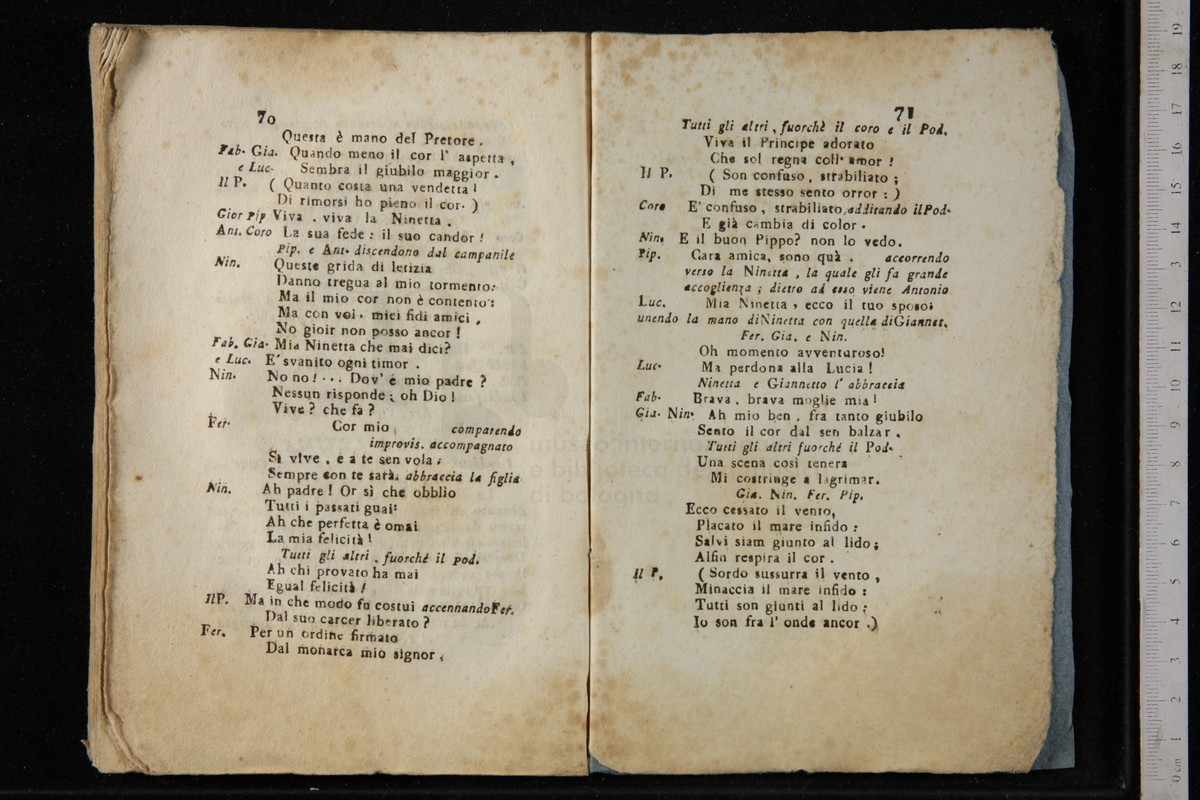 70
Questa è mano del Pretore .
Fab. Gia. Quando meno il cor l' aspetta ,
e Luc. Sembra il giubilo maggior .
Il P. ( Quanto costa una vendetta !
Di rimorsi ho pieno il cor. )
Gior Pip Viva . viva la Ninetta .
Ant. Coro La sua fede : il suo candor !
Pip. e Ant. discendono dal campanile
Nin. Queste grida di letizia
Danno tregua al mio tormento:
Ma il mio cor non è contento :
Ma con voi . miei fidi amici ,
No gioir non posso ancor !
Fab. Gia. Mia Ninetta che mai dici?
e Luc. E' svanito ogni timor .
Nin. No no ! ... Dov' é mio padre ?
Nessun risponde ; oh Dio !
Vive ? che fa ?
Fer. Cor mio , comparendo
improvis. accompagnato
Sì vive , e a te sen vola ;
Sempre con te sarà. abbraccia la figlia
Nin. Ah padre ! Or sì che obblio
Tutti i passati guai:
Ah che perfetta è omai
La mia felicità !
Tutti gli altri , fuorché il pod.
Ah chi provato ha mai
Egual felicità !
Il P. Ma in che modo fu costui accennando Fer.
Dal suo carcer liberato ?
Fer. Per un ordine firmato
Dal monarca mio signor ,
71
Tutti gli altri , fuorchè il coro e il Pod.
Viva il Principe adorato
Che sol regna coll' amor !
Il P. ( Son confuso , strabiliato ;
Di me stesso sento orror : )
Coro E' confuso , strabiliato, additando il Pod.
E già cambia di color .
Nin. E il buon Pippo? non lo vedo.
Pip. Cara amica, sono quà . accorrendo
verso la Ninetta , la quale gli fa grande
accoglienza ; dietro ad esso viene Antonio
Luc. Mia Ninetta , ecco il tuo sposo:
unendo la mano di Ninetta con quella di Giannet.
Fer. Gia. e Nin.
Oh momento avventuroso!
Luc. Ma perdona alla Lucia !
Ninetta e Giannetto l' abbraccia
Fab. Brava , brava moglie mia !
Gia. Nin. Ah mio ben , fra tanto giubilo
Sento il cor dal sen balzar .
Tutti gli altri fuorché il Pod.
Una scena così tenera
Mi costringe a lagrimar.
Gia. Nin. Fer. Pip.
Ecco cessato il vento,
Placato il mare infido :
Salvi siam giunto al lido ;
Alfin respira il cor .
Il P. ( Sordo sussurra il vento ,
Minaccia il mare infido :
Tutti son giunti al lido ;
Io son fra l' onde ancor .)
museo interna
e biblioteca de
di bologna